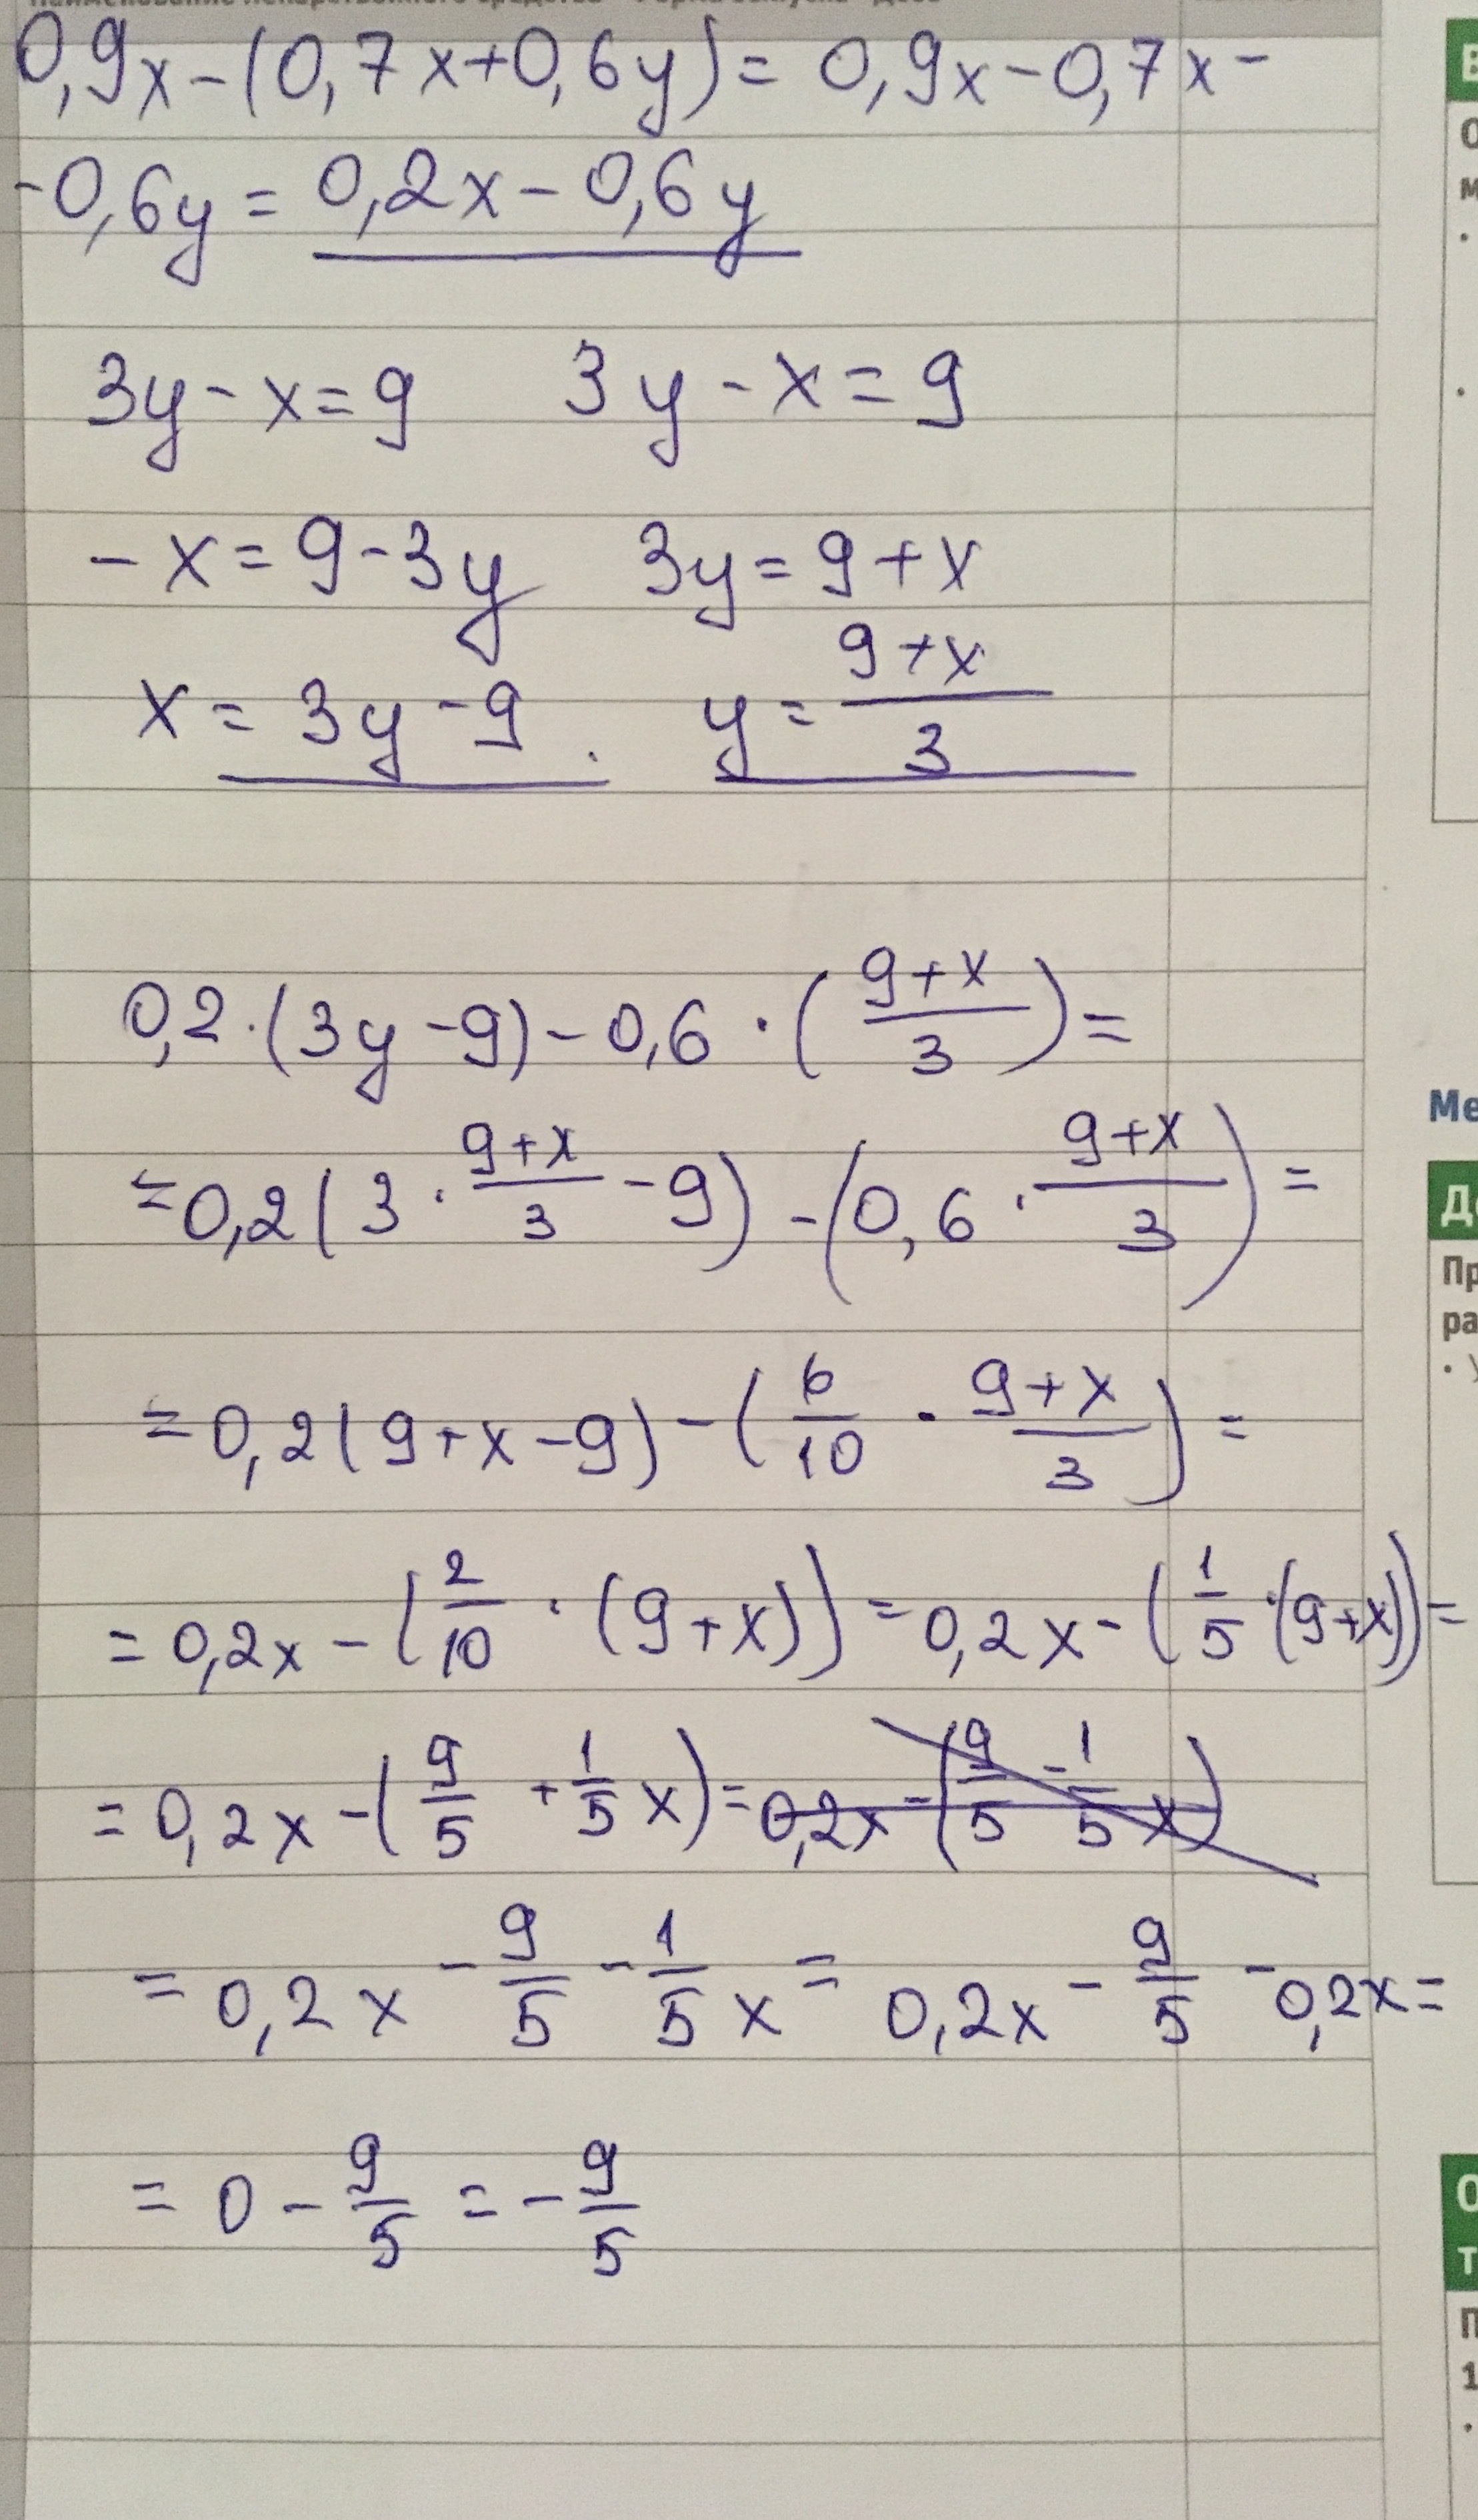 0,9x-(0,7x+0,6y)=0,9x-0,7x-
-0,6y=0,2x-0,6y
3y-x=9 3y-x=9
-x=9-3y 3y=9+x
x=3y-9. y=\frac{9+x}{3}
0,2·(3y-9)-0,6·(\frac{9+x}{3})=
=0,2(3·\frac{9+x}{3}-9)-(0,6·\frac{9+x}{3})=
=0,2(9+x-9)-(\frac{6}{10}·\frac{9+x}{3})=
=0,2x-(\frac{2}{10}·(9+x))=0,2x-(\frac{1}{5}·(9+x))=
=0,2x-(\frac{9}{5}+\frac{1}{5}x)=0,2x-(\frac{9}{5}-\frac{1}{5}x)
=0,2x-\frac{9}{5}-\frac{1}{5}x=0,2x-\frac{9}{5}-0,2x=
=0-\frac{9}{5}=-\frac{9}{5}
Ме
Пр
ра